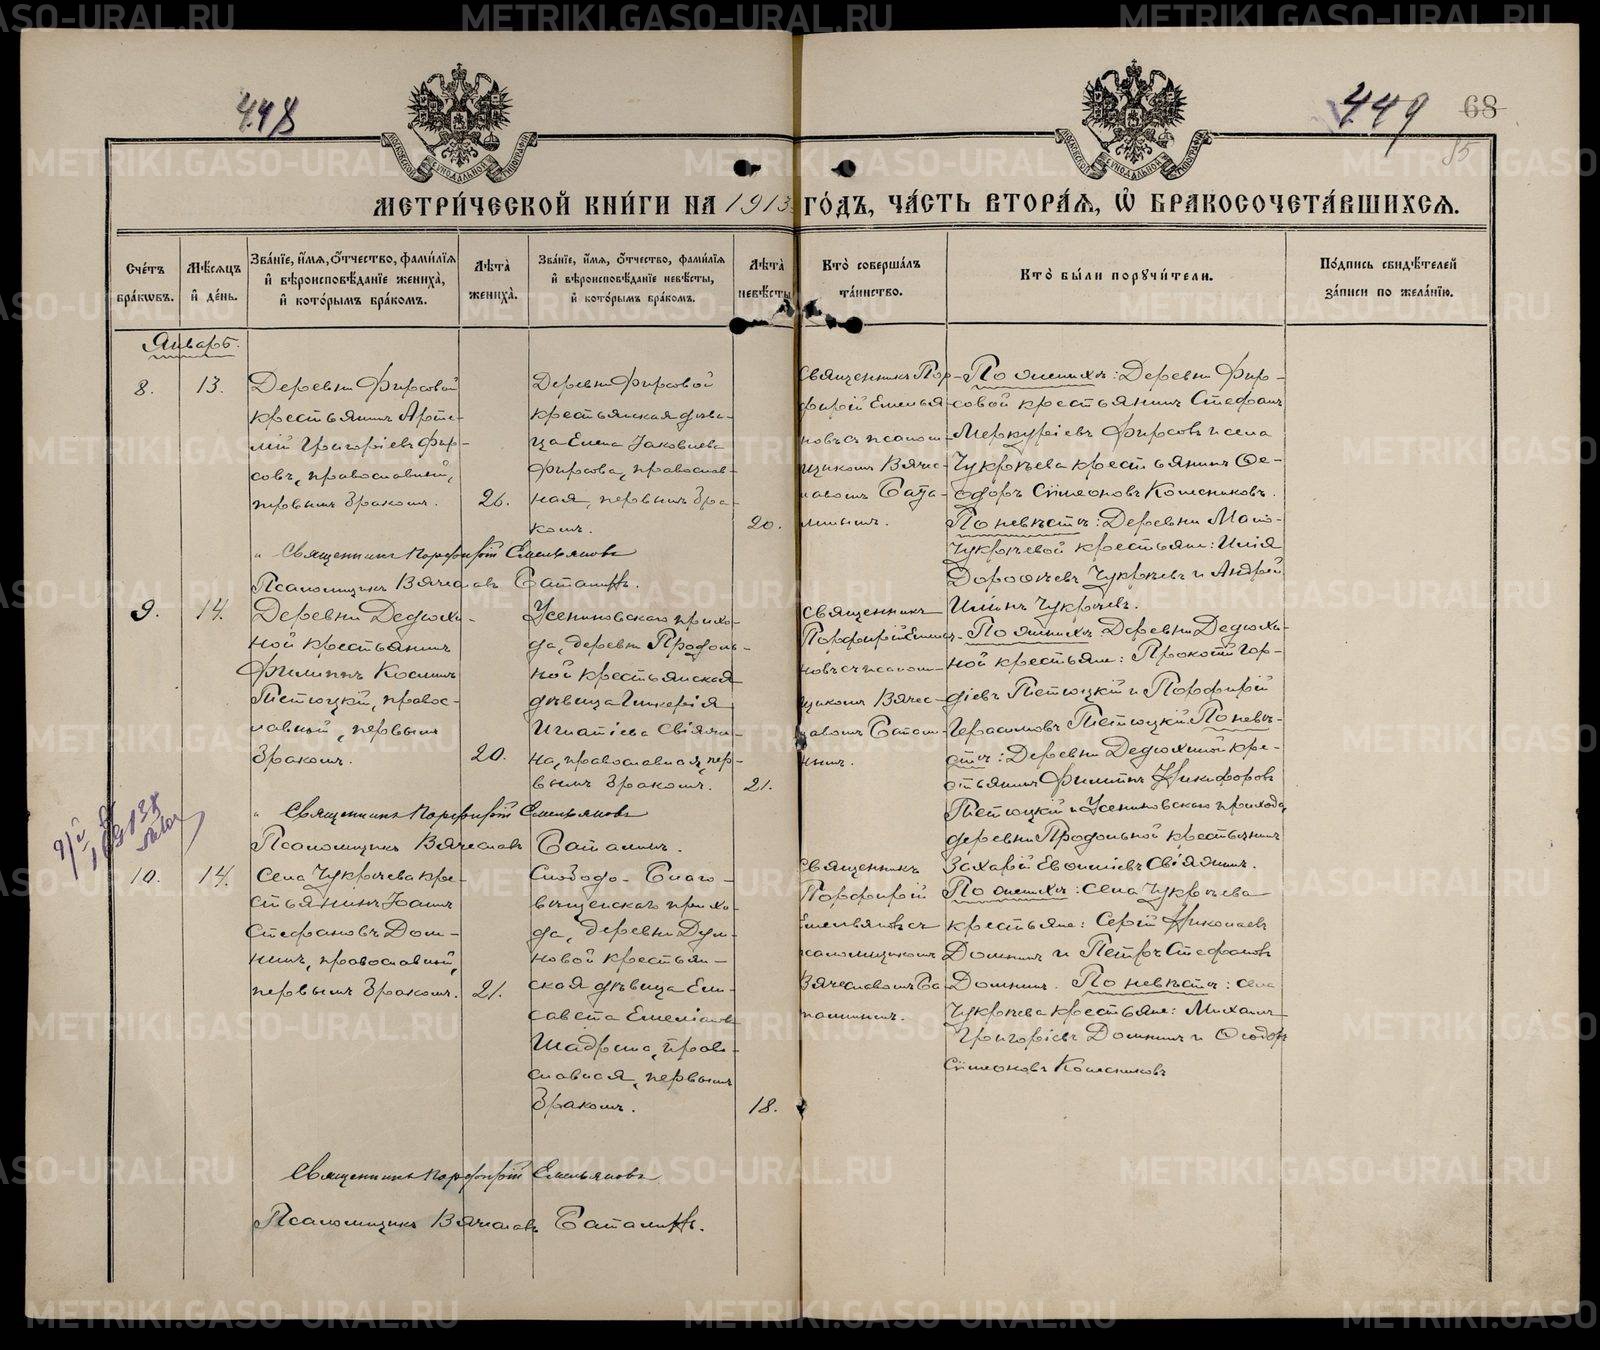 448
449
68
85
МЕТРИ́ЧЕСКОЙ КНИ́ГИ НА 1913 ГО́ДЪ, ЧА́СТЬ ВТОРА́Я, Ѡ҆ БРАКОСОЧЕТА́ВШИХСЯ.
Сче́тъ бра́кѡвъ.
Мѣ́сяцъ и҆ де́нь.
Зва́нїе, и҆́мя, ѻ҆́тчество, фами́лїя и҆ вѣроисповѣ́данїе жениха̀, и҆ кото́рымъ бра́комъ.
Лѣта̀ жениха̀.
Зва́нїе, и҆́мя, ѻ҆́тчество, фами́лїя и҆ вѣроисповѣ́данїе невѣ́сты, и҆ кото́рымъ бра́комъ.
Лѣта̀ невѣ́сты
Кто̀ соверша́лъ та́инство.
Кто̀ бы́ли порꙋчи́тели.
По́дпись свидѣ́телей за́писи по жела́нїю.
Январь.
8.
13.
Деревни Фирсовой
крестьянинъ Арте-
мій Григоріевъ Фир-
совъ, православный,
первымъ бракомъ.
26.
Деревни Фирсовой
крестьянская дѣви-
ца Елена Іаковлева
Фирсова, православ-
ная, первымъ бра-
комъ.
20.
Священникъ Пор-
фирій Емелья-
новъ съ псалом-
щикомъ Вяче-
славомъ Бата-
линымъ.
По женихѣ: Деревни Фир-
совой крестьянинъ Стефанъ
Меркуріевъ Фирсовъ и села
Чукрѣева крестьянинъ Ѳе-
одоръ Сѵмеоновъ Колесниковъ.
По невѣстѣ: Деревни Мало-
Чукрѣевой крестьяне: Илія
Дороѳеевъ Чукрѣевъ и Андрей
Иліинъ Чукрѣевъ.
Священникъ Порфирій Емельяновъ
Псаломщикъ Вячеславъ Баталинъ.
9.
14.
Деревни Дедюхи-
ной крестьянинъ
Филиппъ Косминъ
Пѣтюцкій, правос-
лавный, первымъ
бракомъ.
20.
Усениновскаго прихо-
да, деревни Продоль-
ной крестьянская
дѣвица Гликерія
Игнатіева Свіяжи-
на, православная, пер-
вымъ бракомъ.
21.
Священникъ
Порфирій Емелья-
новъ съ псалом-
щикомъ Вячес-
лавомъ Батали-
нымъ.
По женихѣ: Деревни Дедюхи-
ной крестьяне: Прокопій Гор-
діевъ Пѣтюцкій и Порфирій
Герасимовъ Пѣтюцкій. По невѣ-
стѣ: Деревни Дедюхиной кре-
стьянинъ Филиппъ Никифоровъ
Пѣтюцкій и Усениновскаго прихода,
деревни Продольной крестьянинъ
Захарій Евѳиміевъ Свіяжинъ.
Священникъ Порфирій Емельяновъ
Псаломщикъ Вячеславъ Баталинъ.
10.
14.
Села Чукрѣева кре-
стьянинъ Іоаннъ
Стефановъ Дом-
нинъ, православный,
первымъ бракомъ.
21.
Слободо-Благо-
вѣщенскаго прихо-
да, деревни Дум-
новой крестьян-
ская дѣвица Ели-
савета Емеліанова
Шадрина, право-
славная, первымъ
бракомъ.
18.
Священникъ
Порфирій
Емельяновъ съ
псаломщикомъ
Вячеславомъ Ба-
талинымъ.
По женихѣ: села Чукрѣева
крестьяне: Сергій Николаевъ
Домнинъ и Петръ Стефановъ
Домнинъ. По невѣстѣ: села
Чукрѣева крестьяне: Михаилъ
Григоріевъ Домнинъ и Ѳеодоръ
Сѵмеоновъ Колесниковъ
Священникъ Порфирій Емельяновъ
Псаломщикъ Вячеславъ Баталинъ.
METRIKI.GASO-URAL.RU